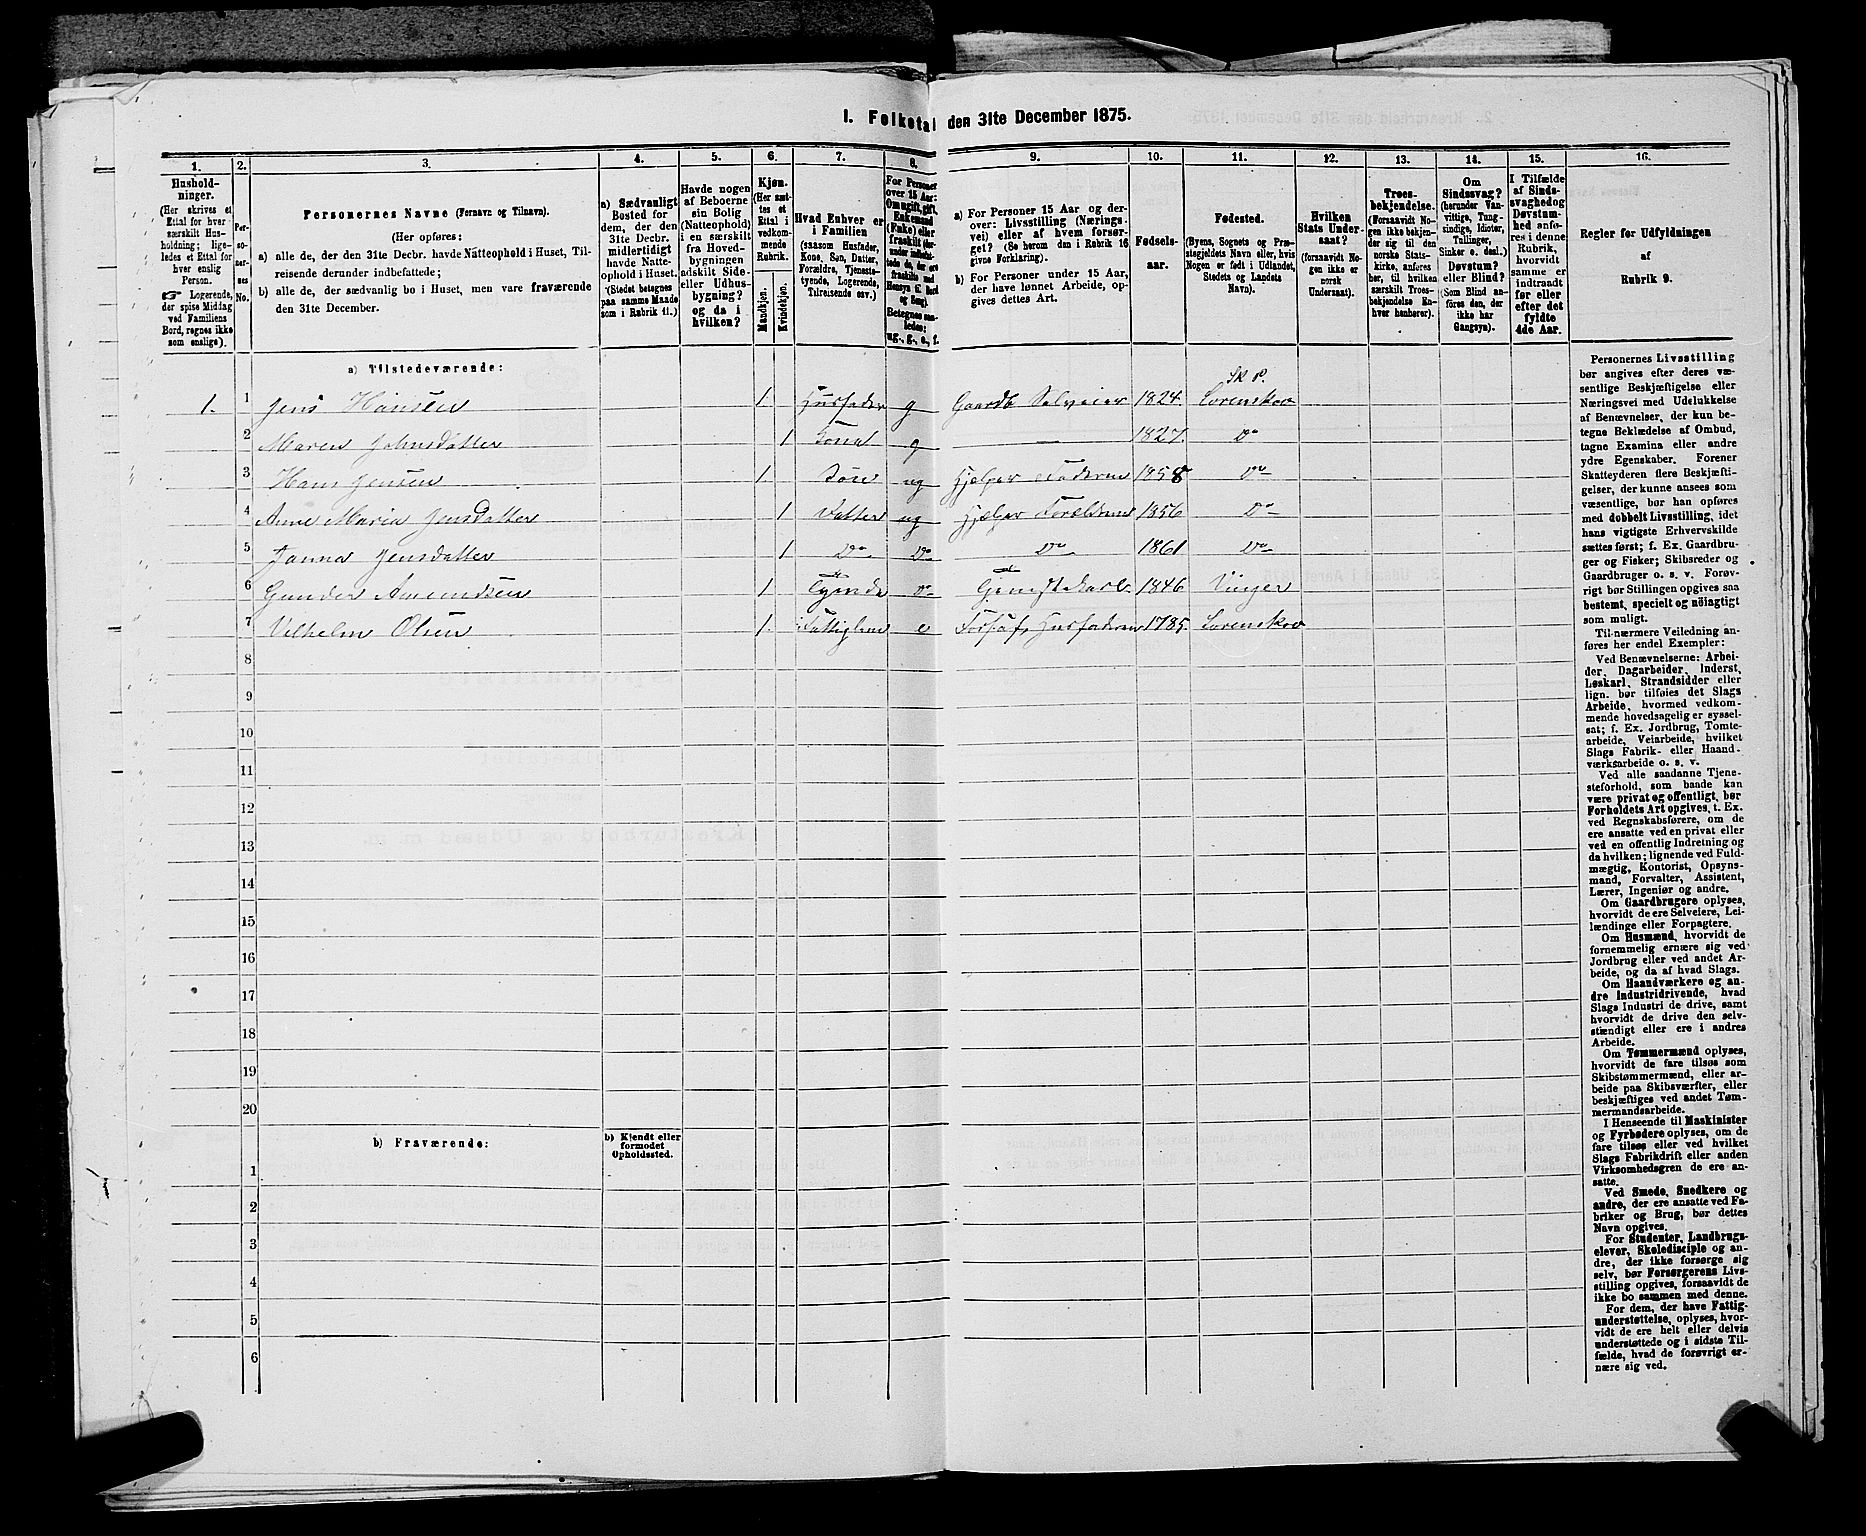 1. Folketal den 31te December 1875.
1. 2. 3. 4. 5. 6. 7. 8. 9. 10. 11. 12. 13. 14. 15. 16.
Hushold-
ninger.
(Her skrives et
Ettal for hver
særskilt Hus-
holdning; lige-
ledes et Ettal for
hver enslig
Person.
☞ Logerende,
der spise Middag
ved Familiens
Bord, regnes ikke
som enslige).
Per-
so-
ner-
nes
No.
Personernes Navne (Fornavn og Tilnavn).
(Her opføres:
a) alle de, der den 31te Decbr. havde Natteophold i Huset, Til-
reisende derunder indbefattede;
b) alle de, der sædvanlig bo i Huset, men vare fraværende
den 31te December.
a) Sædvanligt
Bosted for
dem, der den
31te Decbr.
midlertidigt
havde Natte-
ophold i Huset.
(Stedet betegnes
paa samme Maade
som i Rubrik 11.)
Havde nogen
af Beboerne
sin Bolig
(Natteophold)
i en særskilt
fra Hoved-
bygningen
adskilt Side-
eller Udhus-
bygning?
og da i
hvilken?
Kjøn.
(Her sæt-
tes et
Ettal i
vedkom-
mende
Rubrik.
Mandkjøn.
Kvindekjøn.
Hvad Enhver er
i Familien
(saasom Husfader,
Kone, Søn, Datter,
Forældre, Tjeneste-
tyende, Logerende,
Tilreisende osv.)
For Personer
over 15 Aar:
Om ugift, gift,
Enkemand
(Enke) eller
fraskilt (der-
under indbefat-
tede de, der ere
fraskilte med
Hensyn til Bord
og Seng).
Betegnes saa-
ledes:
ug., g., e., f.
a) For Personer 15 Aar og der-
over: Livsstilling (Nærings-
vei) eller af hvem forsør-
get? (Se herom den i Rubrik 16
givne Forklaring).
b) For Personer under 15 Aar,
der have lønnet Arbeide, op-
gives dettes Art.
Fødsels-
aar.
Fødested.
(Byens, Sognets og Præ-
stegjeldets Navn eller, hvis
Nogen er født i Udlandet,
Stedets og Landets
Navn).
Hvilken
Stats Under-
saat?
(forsaavidt No-
gen ikke er
norsk
Undersaat).
Troes-
bekjendelse.
(Forsaavidt No-
gen ikke bekjen-
der sig til den
norske Stats-
kirke, anføres
her, til hvilken
særskilt Troes-
bekjendelse En-
hver henhører).
Om
Sindssvag?
(herunder Van-
vittige, Tung-
sindige, Idioter,
Tullinger,
Sinker o. desl.)
Døvstum?
eller Blind?
(Som Blind an-
føres den, der
ikke har
Gangsyn).
I Tilfælde
af Sinds-
svaghed og
Døvstum-
hed anfø-
res i denne
Rubrik,
hvorvidt
samme er
indtraadt
før eller
efter det
fyldte
4de Aar.
Regler for Udfyldningen
af
Rubrik 9.
a) Tilstedeværende:
Sk P.
1. 1 Jens Hansen 1. Husfader g Gaardb Selveier 1824. Lørenskov
2 Maren Johnsdatter 1 Kone g — 1827. Do
3 Hans Jensen 1. Søn ug Hjelper Faderen 1858 Do
4 Anne Maria Jensdatter 1 Datter ug Hjelper Forældrene 1856 Do
5 Janna Jensdatter 1 Do Do Do 1861 Do
6 Gunder Amundsen 1 Do Gjenstekarl. 1846 Vinger
7 Vilhelm Olsen 1. Fattiglem e Husfaderen 1785. Lørenskov
8
9
10
11
12
13
14
15
16
17
18
19
20
b) Fraværende:
b) Kjendt eller
formodet
Opholdssted.
1
2
3
4
5
6
Personernes Livsstilling
bør angives efter deres væ-
sentlige Beskjæftigelse eller
Næringsvei med Udelukkelse
af Benævnelser, der kun be-
tegne Beklædelse af Ombud,
tagne Examina eller andre
ydre Egenskaber. Forener
Skatteyderen flere Beskjæfti-
gelser, der kunne ansees som
væsentlige, bør han opføres
med dobbelt Livsstilling, idet
hans vigtigste Erhvervskilde
sættes først; f. Ex. Gaardbru-
ger og Fisker; Skibsreder og
Gaardbruger o. s. v. Forøv-
rigt bør Stillingen opgives saa
bestemt, specielt og nöiagtigt
som muligt.
Til nærmere Veiledning an-
føres her endel Exempler:
Ved Benævnelserne: Arbei-
der, Dagarbeider, Inderst,
Løskarl, Strandsidder eller
lign. bør tilføies det Slags
Arbeide, hvormed vedkom-
mende hovedsagelig er syssel-
sat; f. Ex. Jordbrug, Tomte-
arbeide, Veiarbeide, hvilket
Slags Fabrik- eller Haand-
værksarbeide o. s. v.
Ved alle saadanne Tjene-
steforhold, som baade kan
være privat og offentligt, bør
Forholdets Art opgives, t. Ex.
ved Regnskabsførere, om de
ere ansatte ved en privat eller
ved en offentlig Indretning og
da hvilken; lignende ved Fuld-
mægtig, Kontorist, Opsyns-
mand, Forvalter, Assistent,
Lærer, Ingeniør og andre.
Om Gaardbrugere oplyses,
hvorvidt de ere Selveiere, Lei-
lændinge eller Forpagtere.
Om Husmænd, hvorvidt de
fornemmelig ernære sig ved
Jordbrug eller ved andet Ar-
beide, og da af hvad Slags.
Om Haandværkere og an-
dre Industridrivende, hvad
Slags Industri de drive, samt
hvorvidt de drive den selv-
stændigt eller ere i andres
Arbeide.
Om Tømmermænd oplyses,
hvorvidt de fare tilsøs som
Skibstømmermænd, eller ar-
beide paa Skibsværfter, eller
beskjæftiges ved andet Tøm-
mermandsarbeide.
I Henseende til Maskinister
og Fyrbødere oplyses, om de
fare tilsøs eller ved hvilket
Slags Fabrikdrift eller anden
Virksomhedsgren de ere an-
satte.
Ved Smede, Snedkere og
andre, der ere ansatte ved Fa-
briker og Brug, bør dettes
Navn opgives.
For Studenter, Landbrugs-
elever, Skoledisciple og an-
dre, der ikke forsørge sig
selv, bør Forsørgerens Livs-
stilling opgives, forsaavidt de
ikke bo sammen med denne.
For dem, der have Fattig-
understøttelse, oplyses, hvor-
vidt de ere helt eller delvis
understøttede og i sidste Til-
fælde, hvad de forøvrigt er-
nære sig ved.